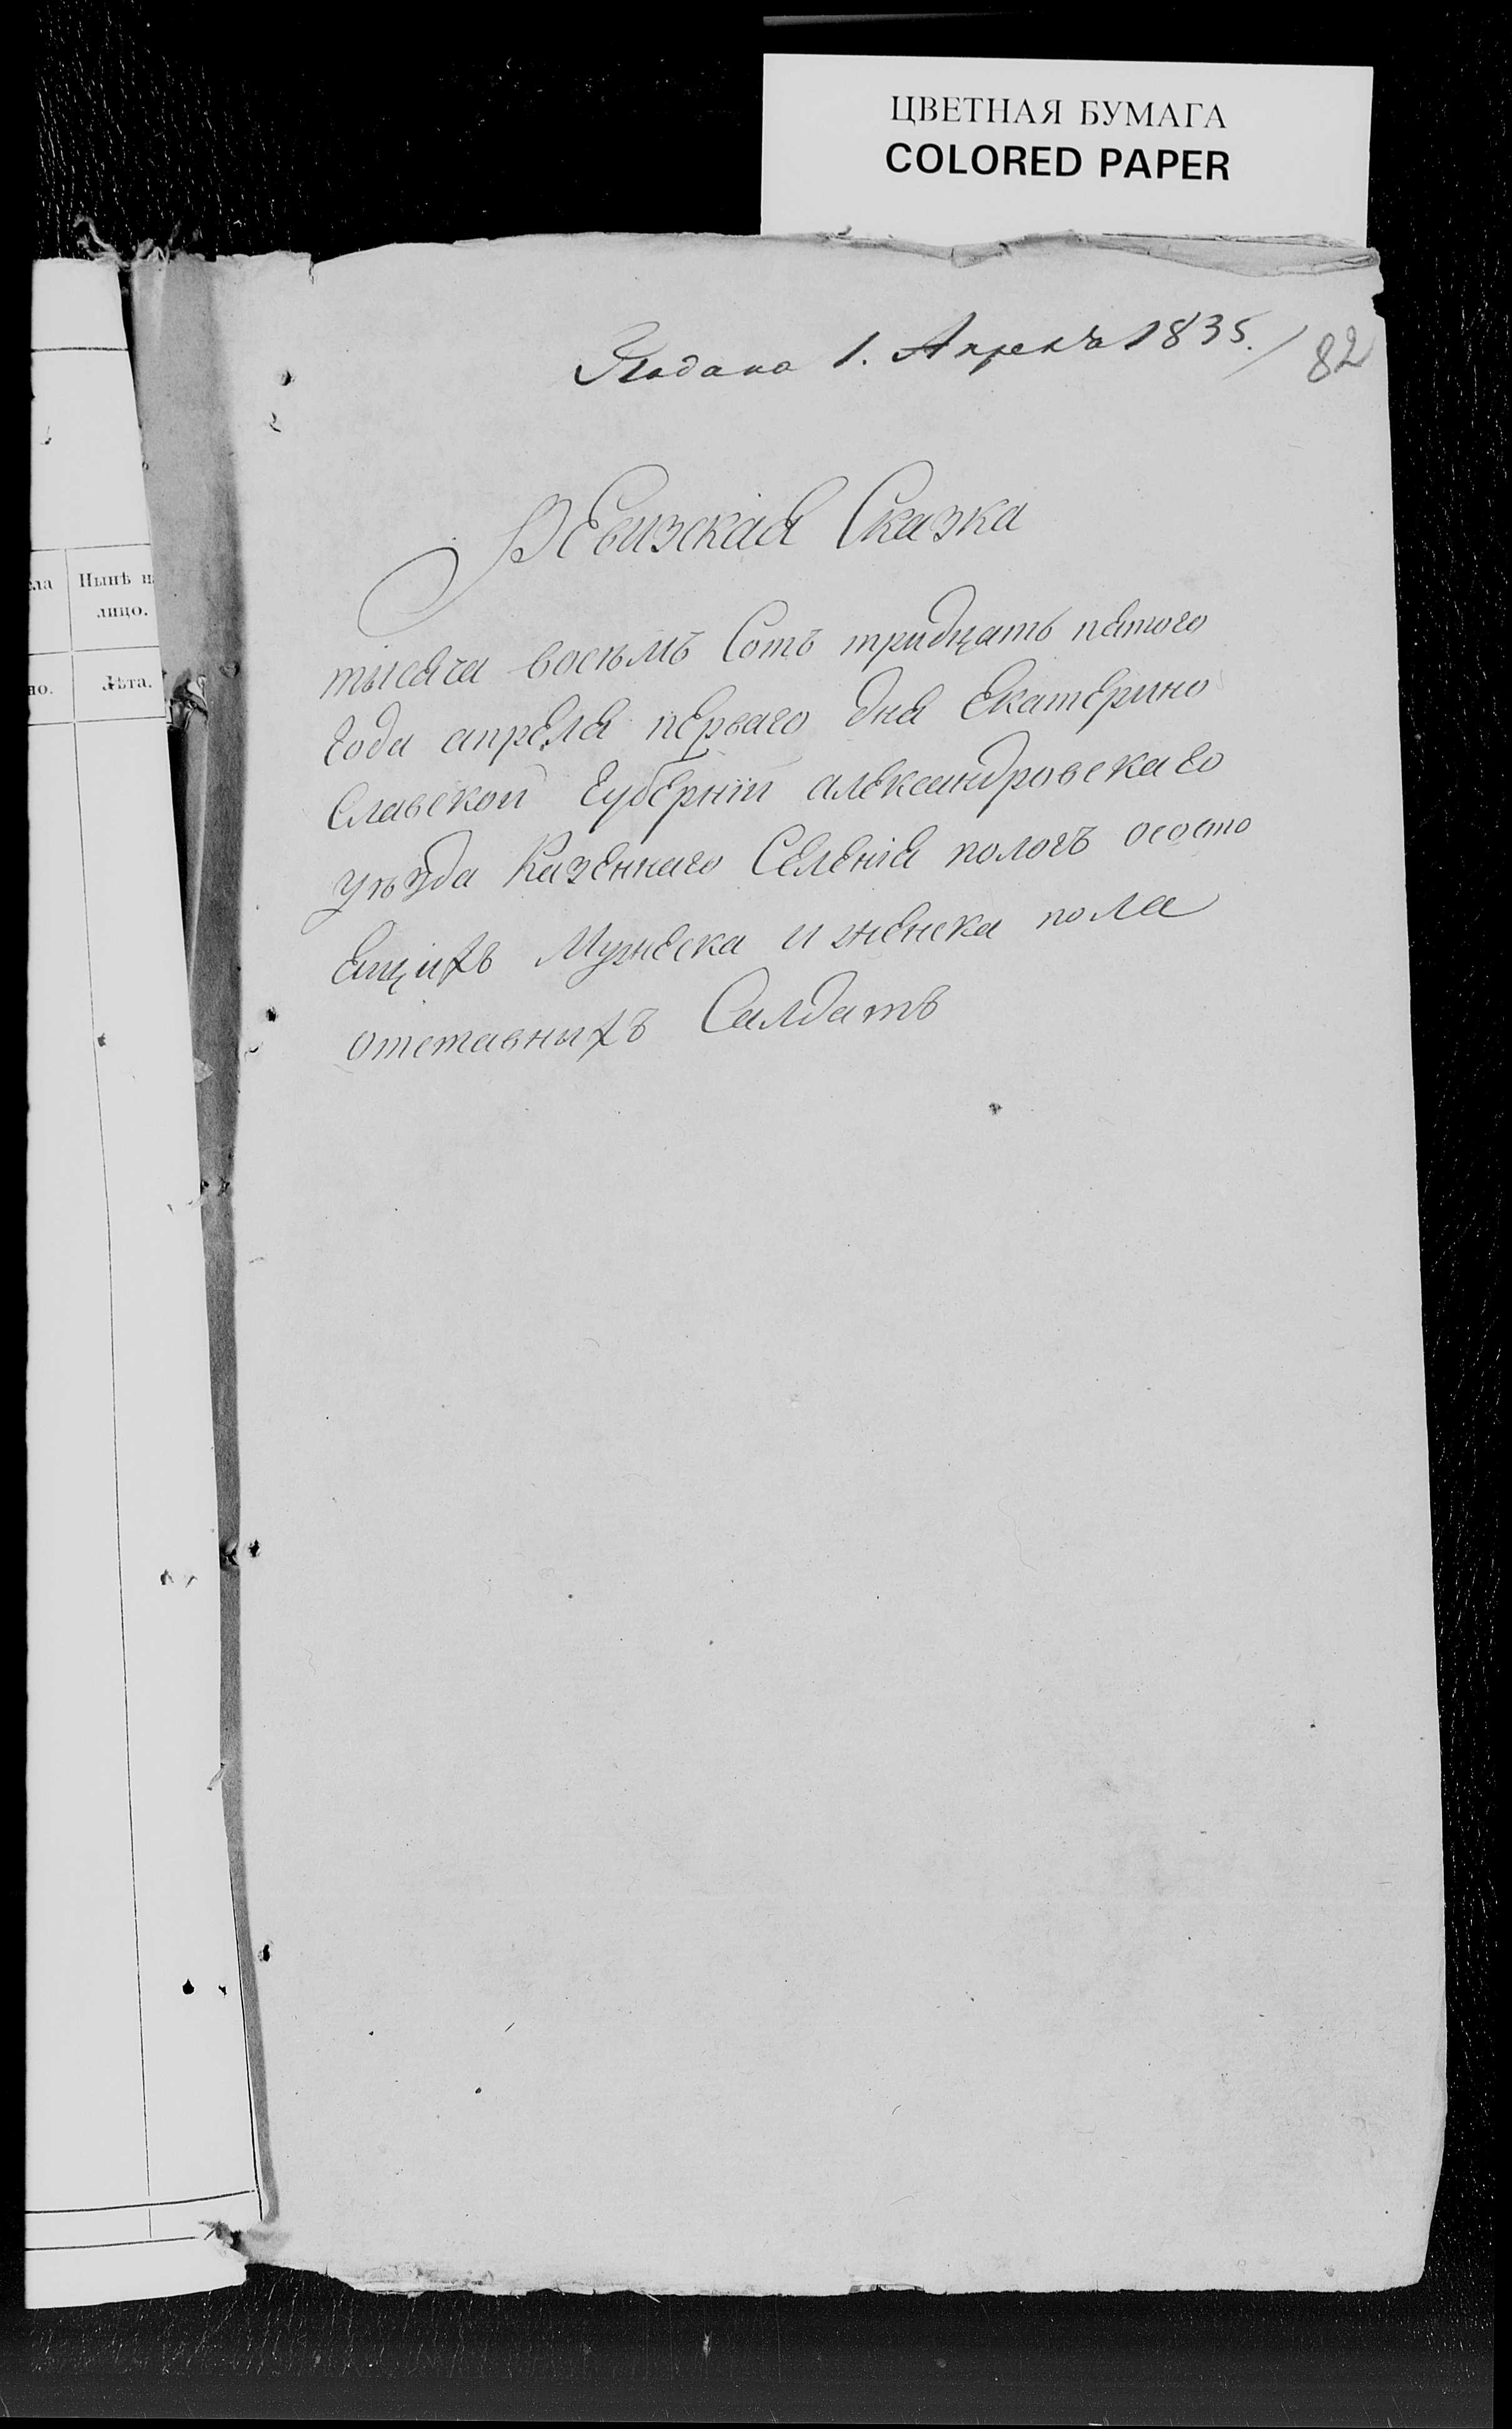 ЦВЕТНАЯ БУМАГА
COLORED PAPER
Подана 1. Апреля 1835.
82
Ревизская Сказка
тысяча восемь Сотъ тридцать пятого
Года апреля перваго дня Екатерино
Славской Губерніи александровскаго
уѣзда Казеннаго Селенія пологъ ососто
ящихъ Мужеска и женска пола
отставныхъ Салдатъ
ла
Нынѣ н
лицо.
но.
Лѣта.